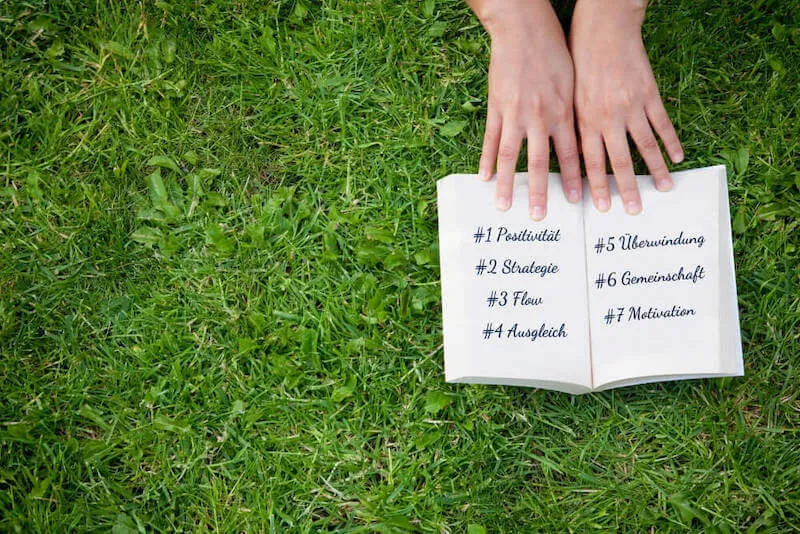 #1 Positivität
#2 Strategie
#3 Flow
#4 Ausgleich
#5 Überwindung
#6 Gemeinschaft
#7 Motivation